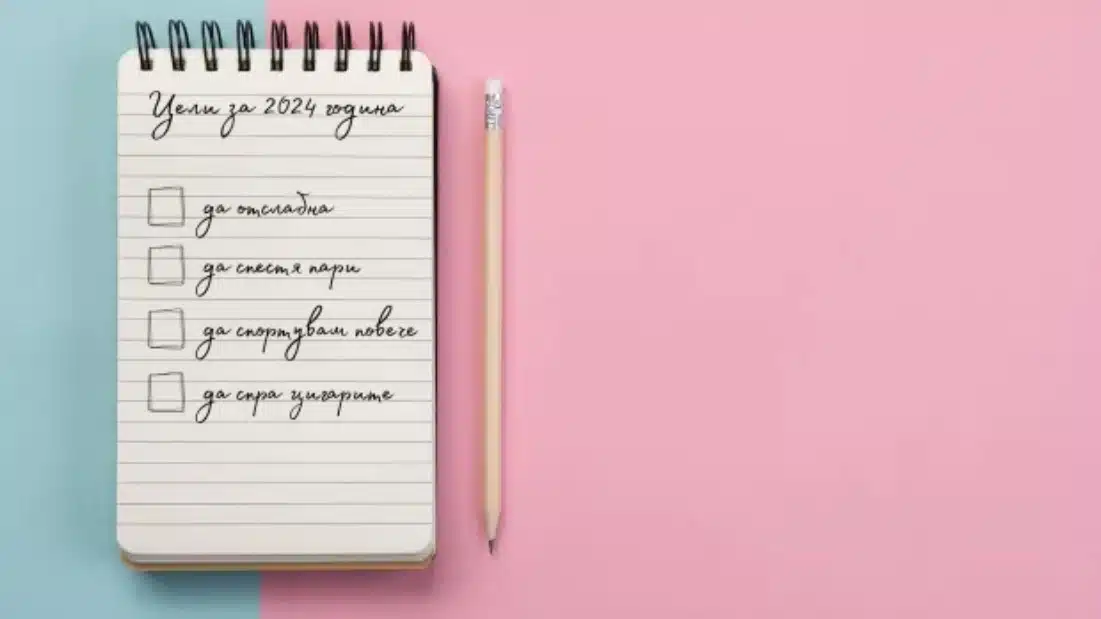 Цели за 2024 година
да отслабна
да спестя пари
да спортувам повече
да спра цигарите